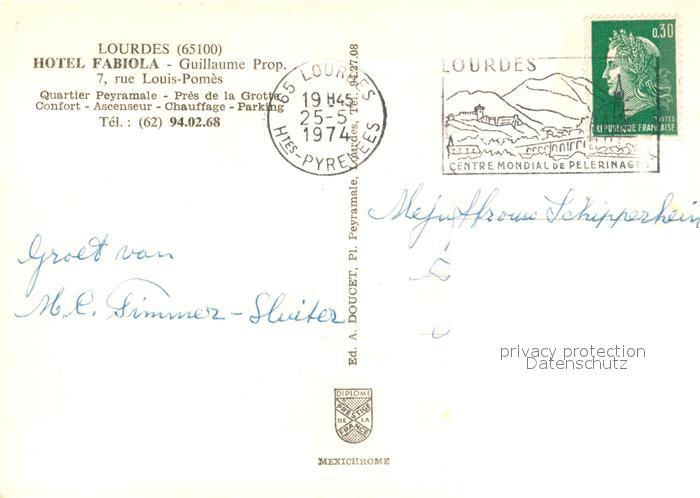 LOURDES (65100)
HOTEL FABIOLA - Guillaume Prop.
7, rue Louis-Pomès
Quartier Peyramale - Près de la Grotte
Confort - Ascenseur - Chauffage - Parking
Tél. : (62) 94.02.68
65 LOURDES
19 H45
25-5
1974
HTES-PYRENEES
LOURDES
CENTRE MONDIAL DE PELERINAGES
0,30
POSTES
REPUBLIQUE FRANÇAISE
Ed. A. DOUCET, Pl. Peyramale, Lourdes, Tél. 94.27.08
Groet van
M.C. Timmer-Sluiter
Mej. Schipperhein
privacy protection
Datenschutz
DIPLOME
PRESTIGE
DE LA
FRANCE
MEXICHROME